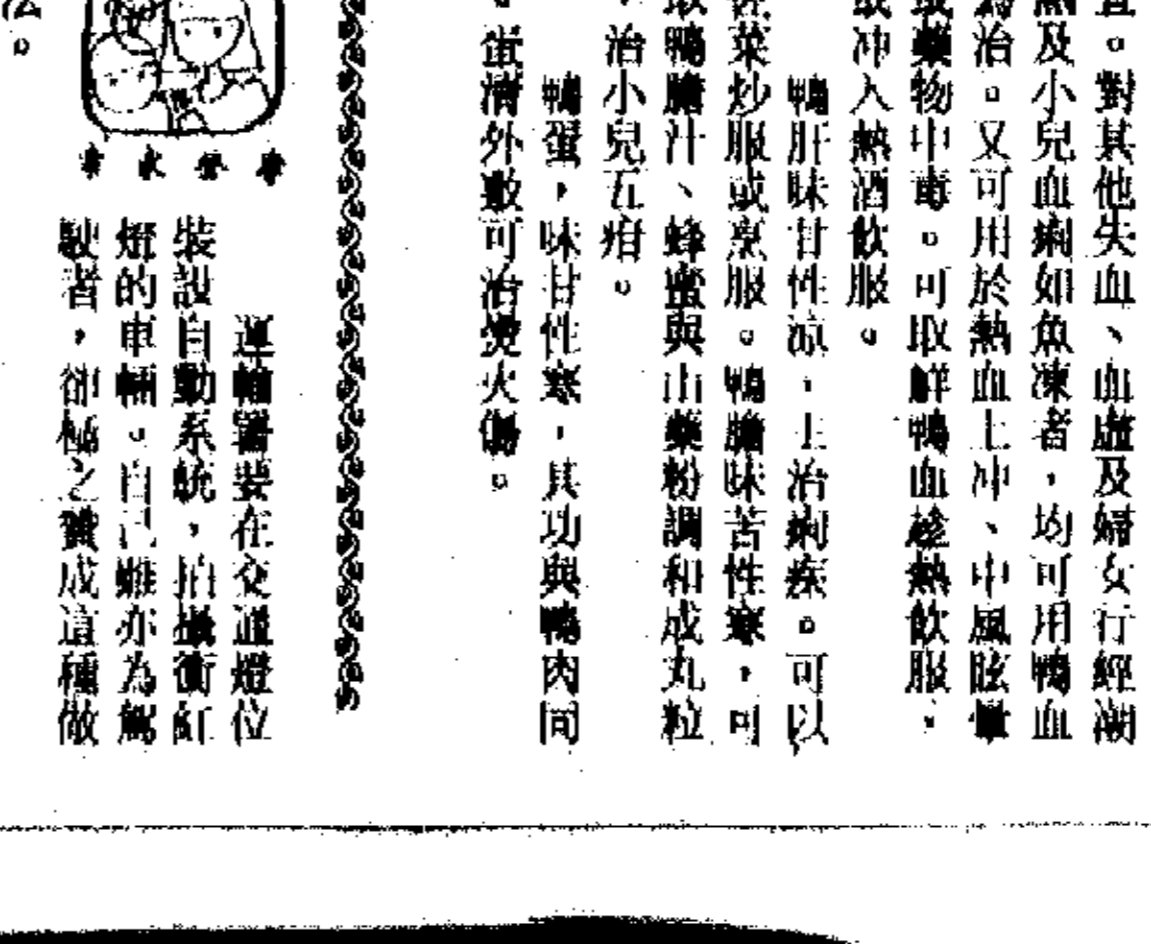 。對其他失血、血虛及婦女行經潮
及小兒血痢如魚凍者，均可用鴨血
治。又可用於熱血上冲、中風眩暈
藥物中毒。可取鮮鴨血趁熱飲服，
冲入熱酒飲服。
鴨肝味甘性凉，主治痢疾。可以
菜炒服或烹服。鴨膽味苦性寒，可
鴨膽汁、蜂蜜與山藥粉調和成丸粒
，治小兒五疳。
鴨蛋，味甘性寒，其功與鴨肉同
。蛋清外敷可治燙火傷。
運輸署裝在交通燈位
裝設自動系統，拍攝衝紅
燈的車輛。自己雖亦為駕
駛者，卻極之贊成這種做
法。